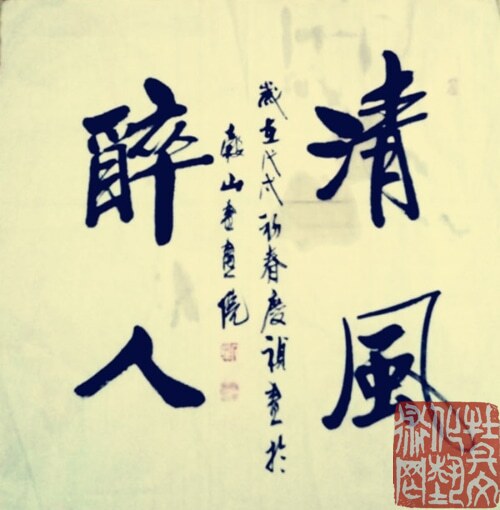 清風
醉人
歲在戊戌初春慶禎書於
山書畫院